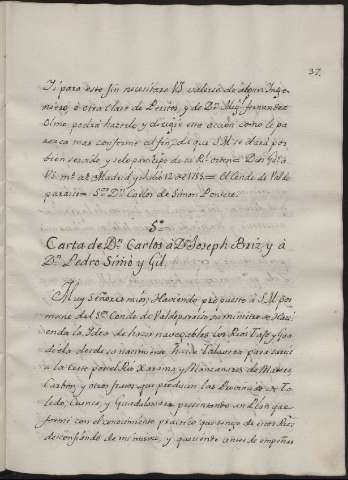 37.
Si para este fin necesitare VS. valerse de algun Inge-
niero, ò otra Clase de Peritos, y de Dn. Migl. fernandez
como podrá hacerlo, y dirigir esta acción como le pa-
rezca mas conforme al fin, de que S.M. se dará por
bien servido y se lo participo de su Rl. orden à Dios gue. à
VS. ms. as. Madrid y Julio 12 de 1755. = el Conde de Valde
paraiso = Sor. Dn. Carlos de Simon Pontero.
5º
Carta de Dn. Carlos à Dn. Joseph Briz, y à
Dn. Pedro Simò y Gil.
Muy Señores mios: Haviendo propuesto à S.M. por
mano del Sor. Conde de Valdeparaiso su ministro de Haci-
enda la Idea de hacer navegables los Rios Tajo, y Gua-
diela desde su nacimiento hasta Talavera para surtir
a la Corte por el Rio Xarama y Manzanares de Madera,
Carbon, y otros frutos que producen las Provincias de To-
ledo, Cuenca, y Guadalaxara presentando un Plan que
formè con el conocimiento practico que tengo de estos Rios
desconfiando de mi mismo, y queriendo antes de empeñar